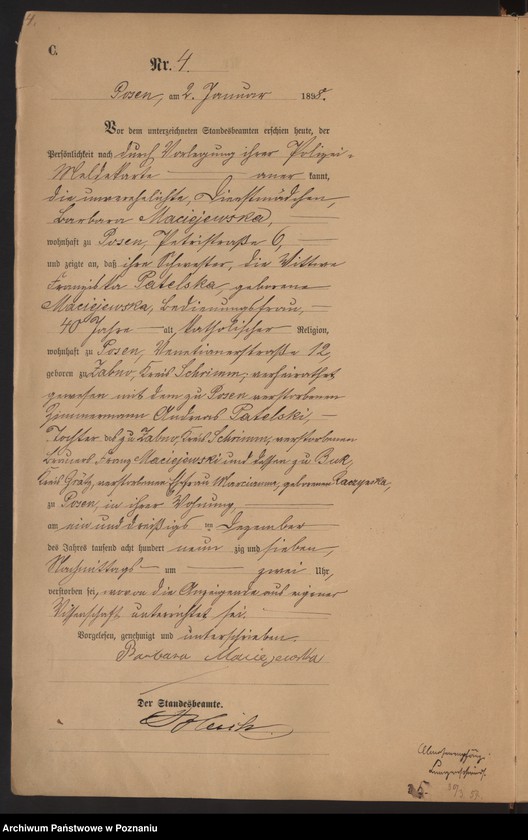 4.
C.
Nr. 4
Posen, am 2. Januar 1898.
Vor dem unterzeichneten Standesbeamten erschien heute, der
Persönlichkeit nach durch Vorlegung ihrer Polizei-
Meldekarte anerkannt,
die unverehelichte, Dienstmädchen,
Barbara Maciejewska,
wohnhaft zu Posen, Petristraße 6,
und zeigte an, daß ihre Schwester, die Wittwe
Franziska Patelska, geborene
Maciejewska, Bedienungsfrau,
40 Jahre alt, katholischer Religion,
wohnhaft zu Posen, Venetianerstraße 12,
geboren zu Zabno, Kreis Schrimm, verheirathet
gewesen mit dem zu Posen verstorbenen
Zimmermann Andreas Patelski,
Tochter des zu Zabno, Kreis Schrimm, verstorbenen
Franz Maciejewski und dessen zu Buk,
Kreis Grätz, verstorbenen Ehefrau Marianna, geborenen
zu Posen, in ihrer Wohnung,
am ein und dreißigsten Dezember
des Jahres tausend acht hundert neun zig und sieben,
Nachmittags um zwei Uhr,
verstorben sei, wovon die Anzeigende aus eigener
Wissenschaft unterrichtet sei.
Vorgelesen, genehmigt und unterschrieben.
Barbara Maciejewska
Der Standesbeamte.
Archiwum Państwowe w Poznaniu